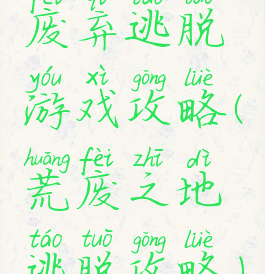 fèi qì táo tuō
废弃逃脱
yóu xì gōng lüè
游戏攻略(
huāng fèi zhī dì
荒废之地
táo tuō gōng lüè
逃脱攻略)